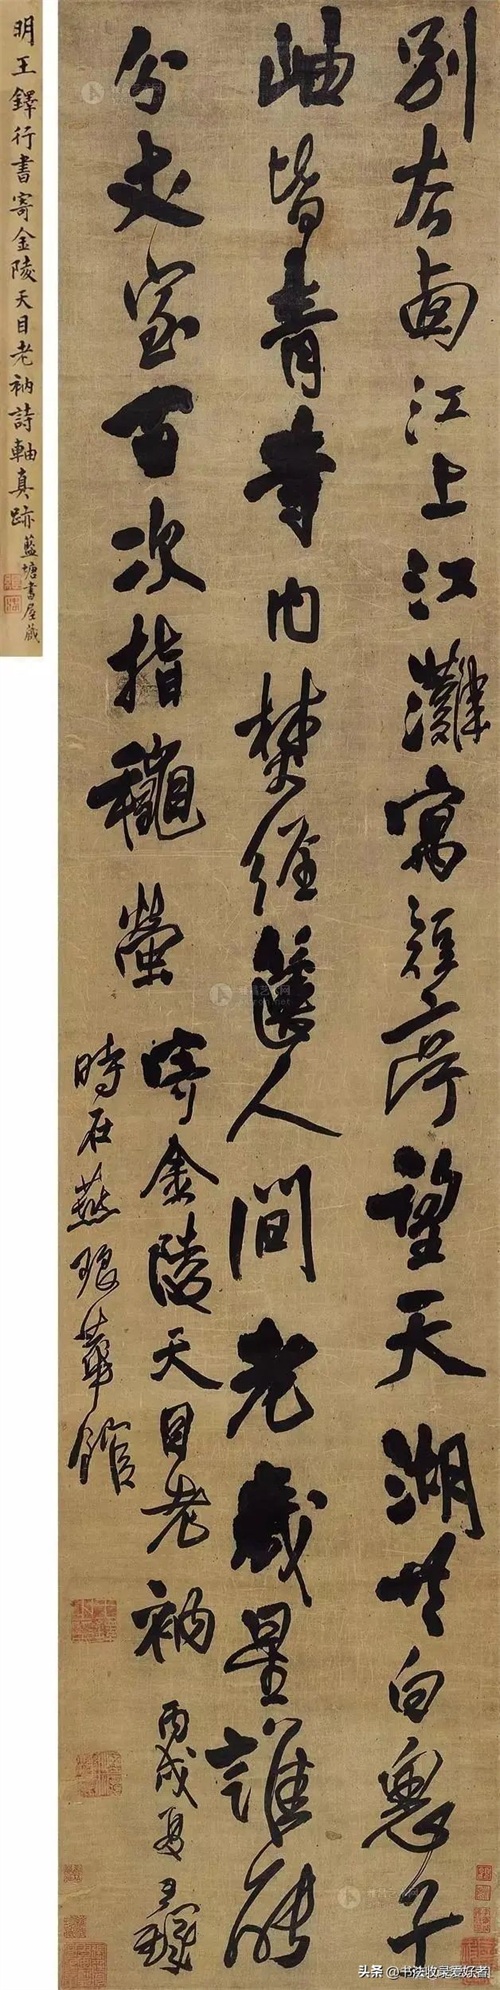 別 鹵江上江灘寓短亭望天湖共白 子
岫皆青寺內焚經篋人間老歲星誰能
分丈室百次指穐螢 寄金陵天目老衲 丙戌夏王鐸
時在燕琅華館
明王鐸行書寄金陵天目老衲詩軸真跡 藍塘書屋藏
头条 @书法收录爱好者